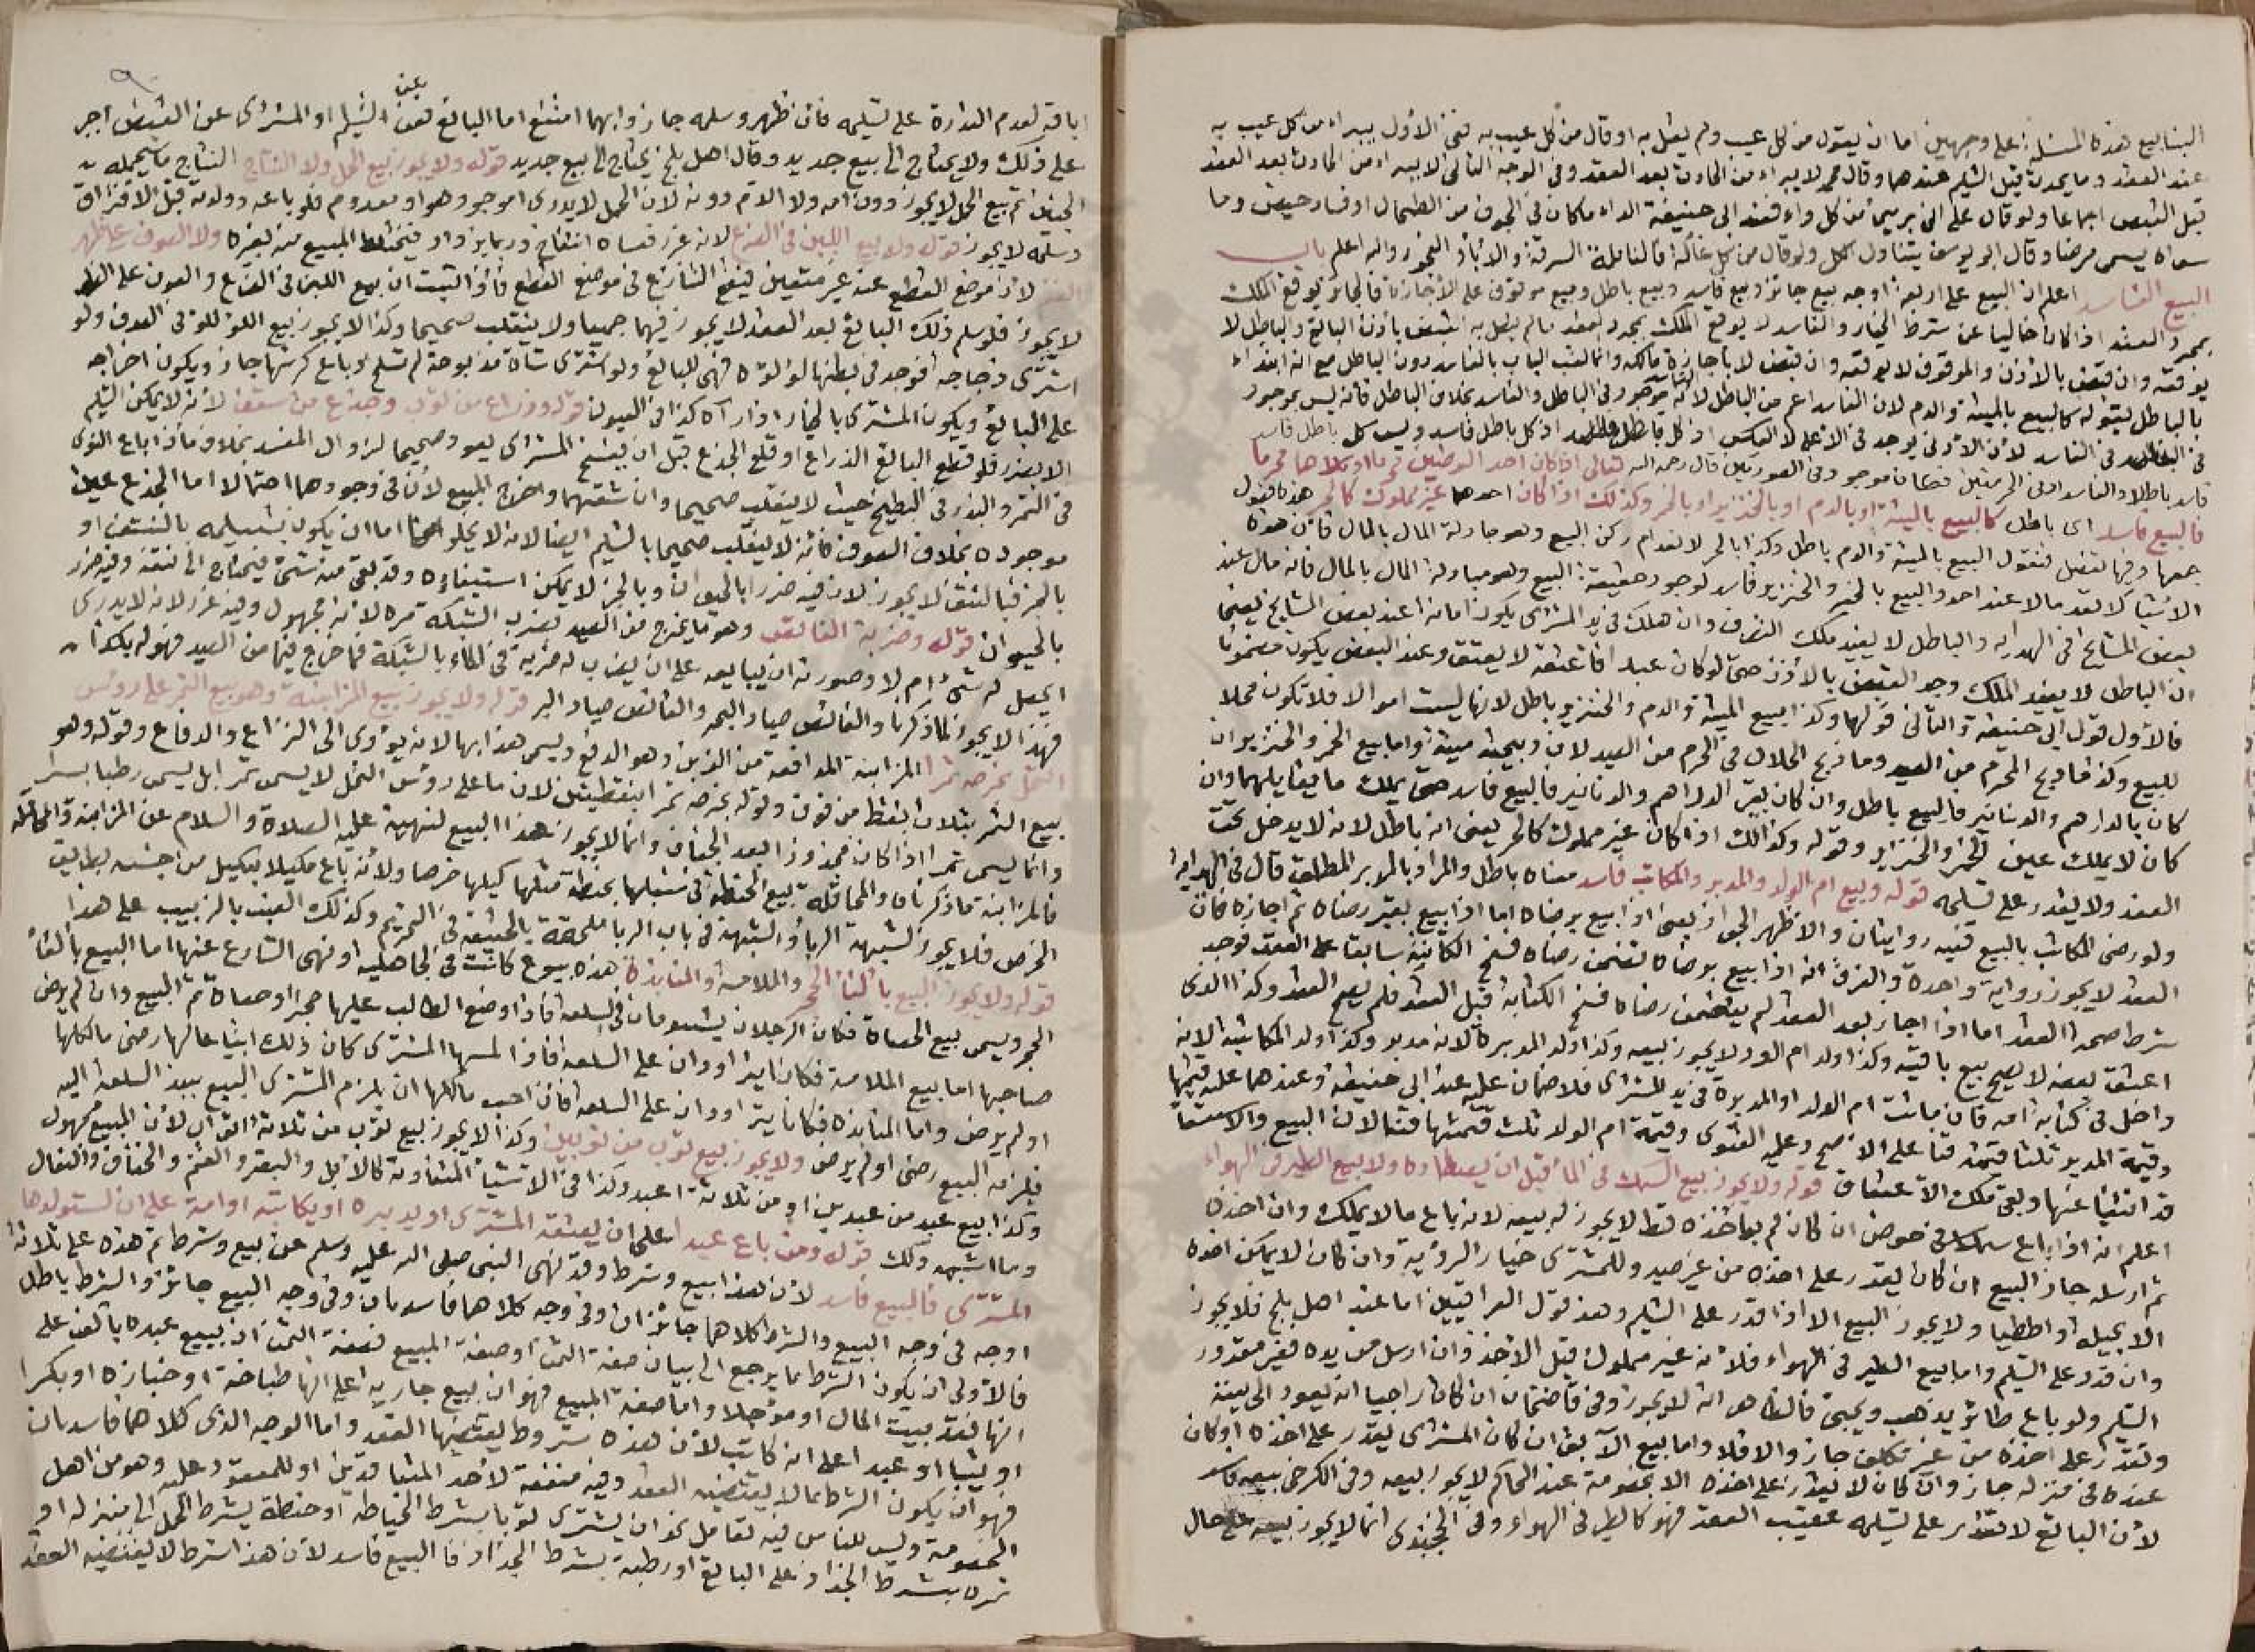 الينابيع هذه المسئلة على وجهين اما ان يقول من كل عيب ولم يقل به او قال من كل عيب به ففي الاول يبراء من كل عيب به
عند العقد وما يحدث قبل التسليم عندهما وقال محمد لا يبراء من الحادث بعد العقد وفي الوجه الثاني لا يبراء من الحادث بعد العقد
قبل القبض اجماعا ولو قال على اني بريئ من كل داء فعند ابي حنيفة الداء ما كان في الجوف من الطحال او فساد حيض وما
سواه يسمى مرضا وقال ابو يوسف يتناول الكل ولو قال من كل غائلة فالغائلة السرقة والاباق والفجور والله اعلم باب
البيع الفاسد اعلم ان البيع على اربعة اوجه بيع جائز وبيع فاسد وبيع باطل وبيع موقوف على الاجازة فالجائز يوقع الملك
بمجرد العقد اذا كان خاليا عن شرط الخيار والفاسد لا يوقع الملك بمجرد العقد ما لم يتصل به القبض باذن البائع والباطل لا
يوقعه وان قبض بالاذن والموقوف لا يوقعه وان قبض الا باجازة مالكه وانما لقب الباب بالفاسد دون الباطل مع انه ابتداء
بالباطل بقوله كالبيع بالميتة والدم لان الفاسد اعم من الباطل لانه موجود في الباطل والفاسد بخلاف الباطل فانه ليس بموجود
في الفاسد لان الادنى يوجد في الاعلى لا العكس اذ كل باطل فاسد وليس كل باطل فاسد
فاسد باطلا والفاسد ادنى الحرمتين فكان موجود في الصورتين قال رحمه الله تعالى اذا كان احد العوضين محرما او كلاهما محرما
فالبيع فاسد اى باطل كالبيع بالميتة او بالدم او بالخنزير او بالخمر وكذلك اذا كان احدهما غير مملوك كالحر هذه فصول
جمعها وفيها تفصيل فنقول البيع بالميتة والدم باطل وكذا بالحر لانعدام ركن البيع وهو مبادلة المال بالمال فان هذه
الاشيا لا تعد مالا عند احد والبيع بالخمر والخنزير فاسد لوجود حقيقة البيع وهو مبادلة المال بالمال فانه مال عند
بعض المشايخ في الهدايه والباطل لا يفيد ملك التصرف وان هلك في يد المشتري يكون امانة عند بعض المشايخ يعني
ان الباطل لا يفيد الملك وجد القبض بالاذن حتى لو كان عبدا فاعتقه لا يعتق وعند البعض يكون مضمونا
فالاول قول ابي حنيفة والثاني قولهما وكذا بيع الميتة والدم والخنزير باطل لانها ليست اموالا فلا تكون محلا
للبيع وكذا ذابح المحرم من الصيد وما ذبح الحلال في الحرم من الصيد لان ذبيحته ميتة واما بيع الخمر والخنزير ان
كان بالدارهم والدنانير فالبيع باطل وان كان بغير الدراهم والدنانير فالبيع فاسد حتى يملك ما يقابلهما وان
كان لا يملك عين الخمر والخنزير وقوله وكذالك اذا كان غير مملوك كالحر يعني انه باطل لانه لا يدخل تحت
العقد ولا يقدر على تسليمه قوله وبيع ام الولد والمدبر والمكاتب فاسد معناه باطل والمراد بالمدبر المطلق قال في الهدايه
ولو رضي المكاتب بالبيع ففيه روايتان والاظهر الجواز يعني اذا بيع برضاه اما اذا بيع بغير رضاه ثم اجازه فان
العقد لا يجوز رواية واحدة والفرق انه اذا بيع برضاه تضمن رضاه فسخ الكتابة سابقا على العقد فوجد
شرط صحة العقد اما اذا اجاز بعد العقد لم يتضمن رضاه فسخ الكتابة قبل العقد فلم يصح العقد وكذا الذي
اعتق بعضه لا يصح بيع باقيه وكذا ولد ام الولد لا يجوز بيعه وكذا ولد المدبرة لانه مدبر وكذا ولد المكاتبة لانه
داخل في كتابة امه فان ماتت ام الولد او المدبرة في يد المشتري فلا ضمان عليه عند ابي حنيفة وعندهما عليه قيمتها
وقيمة المدبر ثلثا قيمته قنا على الاصح وعليه الفتوى وقيمة ام الولد ثلث قيمتها قنة لان البيع والاستسعا
قد انتفيا عنها وبقي ملك الاعتاق قوله ولا يجوز بيع السمك في الما قبل ان يصطاده ولا بيع الطير في الهواء
اعلم انه اذا باع سمكا في حوض ان كان لم ياخذه قط لا يجوز له بيعه لانه باع ما لا يملك وان اخذه
ثم ارسله جاز البيع ان كان يقدر على اخذه من غير صيد وللمشتري خيار الروية وان كان لا يمكن اخذه
الا بحيله او اصطياد لا يجوز البيع الا اذا قدر على التسليم وهذ قول العراقيين اما عند اهل بلخ فلا يجوز
وان قدر على التسليم واما بيع الطير في الهواء فلانه غير مملوك قبل الاخذ وان ارسل من يده فغير مقدور
التسليم ولو باع طائر يذهب ويجئ فالظاهر انه لا يجوز وفي قاضخان ان كان داجنا انه يعود الى بيته
وتقدر على اخذه من غير تكلف جاز والا فلا واما بيع الآبق ان كان المشتري يقدر على اخذه او كان
عنده في منزله جاز وان كان لا يقدر على اخذه الا بخصومة عند الحاكم لا يجوز بيعه وفي الكرخي بيعه فاسد
لان البائع لا يقدر على تسليمه عقيب العقد فهو كالطير في الهواء وفي الخجندى انما لا يجوز بيعه على حال
اباقه لعدم القدرة على تسليمه فان ظهر وسلمه جاز وايهما امتنع اما البائع عن التسليم او المشترى عن القبض اجبر
على ذلك ولا يحتاج الى بيع جديد وقال اهل بلخ يحتاج الى بيع جديد قوله ولا يجوز بيع الحمل ولا النتاج النتاج ما يحمله
الجنين ثم بيع الحمل لا يجوز دون امه ولا الام دونه لان الحمل لا يدرى اموجود هو او معدوم فلو باعه وولدته قبل الافتراق
وسلمه لا يجوز قوله ولا بيع اللبن في الضرع لانه غرر فعساه انتفاخ وربما يزداد فيختلط المبيع من بغيره ولا الصوف على ظهر
الغنم لان موضع القطع عنه غير متعين فيقع التنازع في موضع القطع فاذا اثبت ان بيع اللبن في الضرع والصوف على الظهر
لا يجوز فلو سلم ذلك البائع بعد العقد لا يجوز فيهما جميعا ولا ينقلب صحيحا وكذا لا يجوز بيع اللؤلؤ في الصدف ولو
اشترى دجاجه فوجد في بطنها لؤلؤه فهي للبائع ولو اشترى شاة مذبوحة لم تسلخ وباع كرشها جاز ويكون اخراجه
على البائع ويكون المشترى بالخيار اذا رآه كذا في العيون قوله وذراع من ثوب وجذع من سقف لانه لا يمكن التسليم
الا بضرر فلو قطع البائع الذراع او قلع الجذع قبل ان يفسخ المشترى يعود صحيحا لزوال المفسد بخلاف ما اذا باع النوى
في التمر والبذر في البطيخ حيث لا ينقلب صحيحا وان شقهما واخرج المبيع لان في وجودهما احتمالا اما الجذع عين
موجوده بخلاف الصوف فانه لا ينقلب صحيحا بالتسليم ايضا لانه لا يخلو اما ان يكون تسليمه بالنتف او
بالجز فبالنتف لا يجوز لان فيه ضررا بالحيوان وبالجز لا يمكن استيفاؤه وقد بقي منه شئ فيحتاج الى نتفه وفيه ضرر
بالحيوان قوله وضربة القانص وهو ما يخرج من الصيد بضرب الشبكه مره لانه مجهول وفيه غرر لانه لا يدرى
ايحصل له شئ ام لا وصورته ان يبايعه على ان يضرب له ضربة في الماء بالشبكة فما خرج فيها من الصيد فهو له بكذا
فهذا لا يجوز لما ذكرنا والغائص صياد البحر والقانص صياد البر قوله ولا يجوز بيع المزابنة وهو بيع الثمر على رؤس
النخل بخرصه تمرا المزابنة المدافعة من الزبن وهو الدفع ويسمى هذا بها لانه يؤدى الى النزاع والدفاع وقوله وهو
بيع الثمر بثلاث نقط من فوق وقوله بخرصه تمرا بنقطتين لان ما على رؤس النخل لا يسمى تمرا بل يسمى رطبا بسرا
وانما يسمى تمرا اذا كان مجذوذا بعد الجفاف وانما لا يجوز هذا البيع لنهيه عليه الصلاة والسلام عن المزابنة والمحاقله
فالمزابنة ما ذكرناه والمحاقلة بيع الحنطة في سنبلها بحنطة مثلها كيلها خرصا ولانه باع مكيلا بمكيل من جنسه بطريق
الخرص فلا يجوز لشبهة الربا والشبهة في باب الربا ملحقة بالحقيقة في التحريم وكذلك العنب بالزبيب على هذا
قوله ولا يجوز البيع بالقا الحجر والملامسة والمنابذة هذه بيوع كانت في الجاهلية ونهى الشارع عنها اما البيع بالقا
الحجر ويسمى بيع الحصاة فكان الرجلان يتساومان في السلعه فاذا وضع الطالب عليها حجرا او حصاة تم البيع وان لم يرض
صاحبها اما بيع الملامسة فكانا يتراودان على السلعه فاذا لمسها المشترى كان ذلك ابتياعا لها رضى مالكها
او لم يرض واما المنابذه فكانا يتراودان على السلعه فاذا احب مالكها ان يلزم المشترى البيع ينبذ السلعة اليه
فيلزمه البيع رضى او لم يرض ولا يجوز بيع ثوب من ثوبين وكذا لا يجوز بيع ثوب من ثلاثة اثواب لان المبيع مجهول
وكذا بيع عبد من عبدين او من ثلاثة اعبد وكذا في الاشيا المتفاوتة كالابل والبقر والغنم والخفاف والنعال
وما اشبه ذلك قوله ومن باع عبدا على ان يعتقه المشترى او يدبره او يكاتبه او امة على ان يستولدها
المشترى فالبيع فاسد لان هذا بيع وشرط وقد نهى النبي صلى الله عليه وسلم عن بيع وشرط ثم هذه على ثلاثة
اوجه في وجه البيع والشرط كلاهما جائزان وفي وجه كلاهما فاسدان وفي وجه البيع جائز والشرط باطل
فالاولى ان يكون الشرط مما يرجع الى بيان صفة الثمن او صفة المبيع فصفة الثمن ان يبيع عبده بالف على
انها نقد بيت المال او مؤجلا واما صفة المبيع فهو ان يبيع جاريه على انها طباخة او خبازه او بكرا
او ثيبا او عبد اعلى انه كاتب لان هذه شروط يقتضيها العقد واما الوجه الذي كلاهما فاسدان
فهو ان يكون الشرط مما لا يقتضيه العقد وفيه منفعة لاحد المتعاقدين او للمعقود عليه وهو من اهل
الخصومة وليس للناس فيه تعامل نحو ان يشترى ثوبا بشرط الخياطه او حنطة بشرط الحمل الى منزله او
ثمره بشرط الجذاذ على البائع او رطبة بشرط الجذاذ فالبيع فاسد لان هذا شرط لا يقتضيه العقد